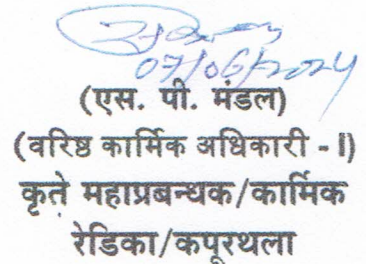 07/06/2024
(एस. पी. मंडल)
(वरिष्ठ कार्मिक अधिकारी - I)
कृते महाप्रबन्धक/कार्मिक
रेडिका/कपूरथला